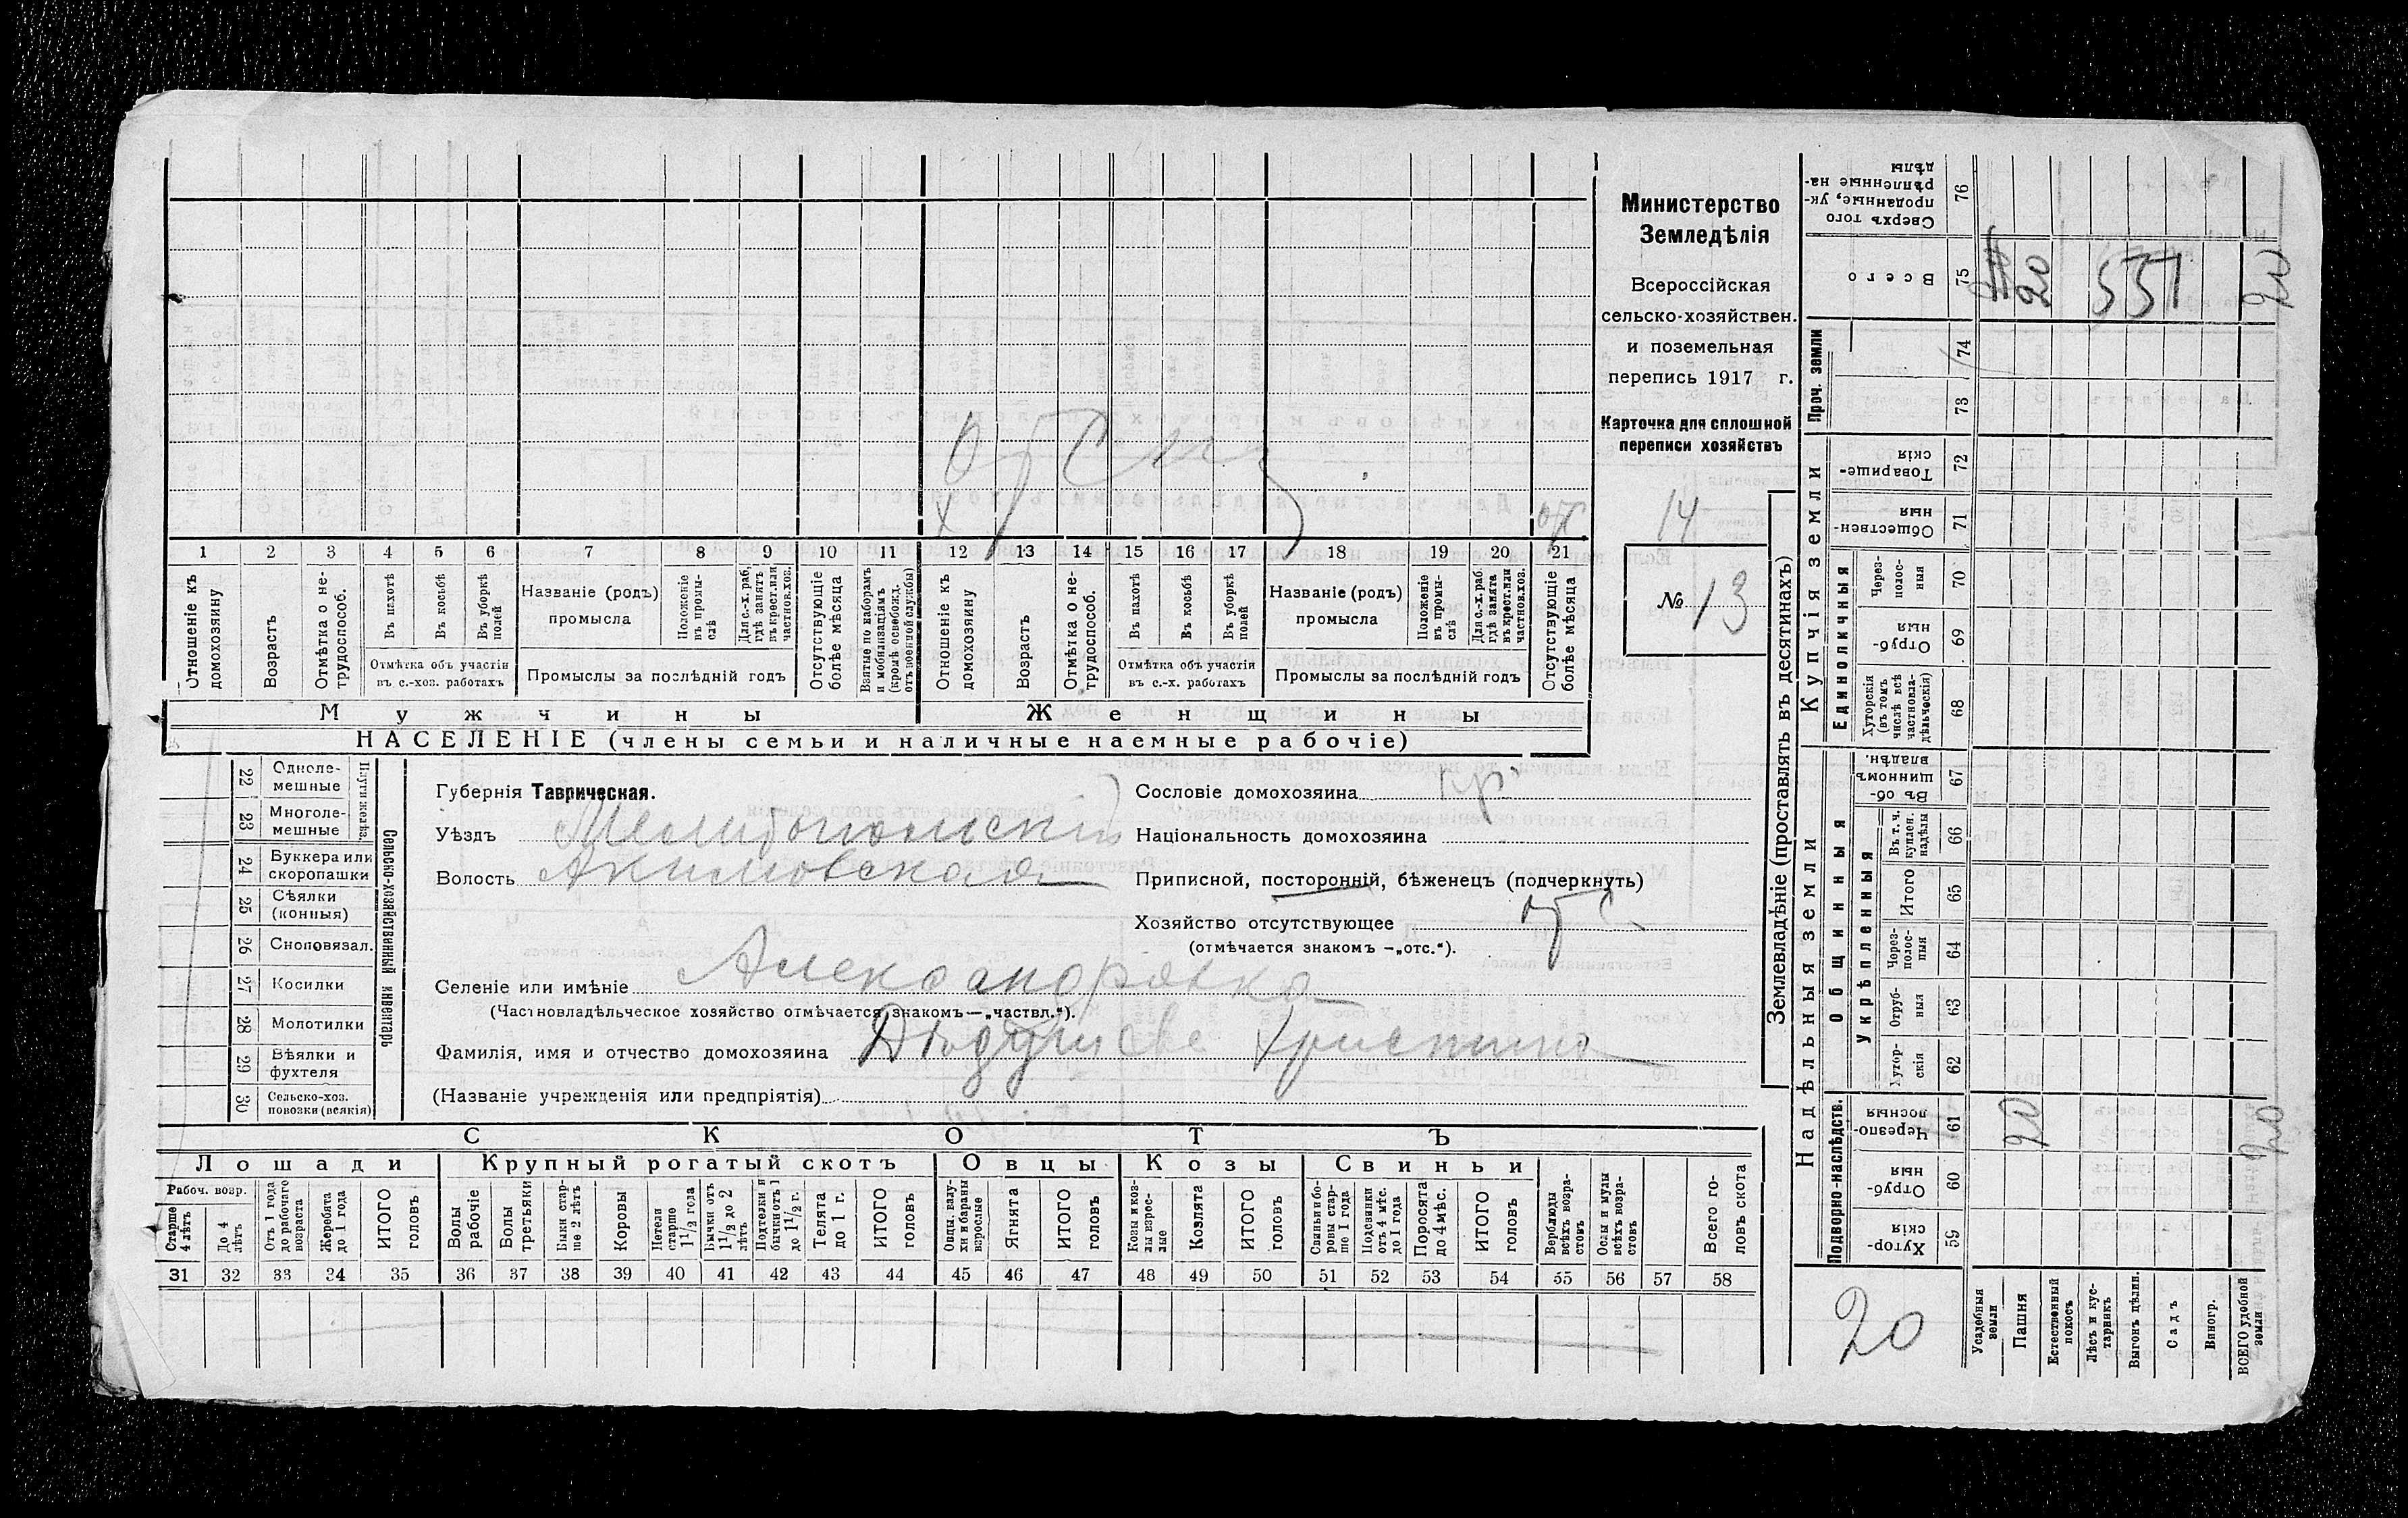 Министерство
Земледѣлія
Всероссійская
сельско-хозяйствен.
и поземельная
перепись 1917 г.
Карточка для сплошной
переписи хозяйствъ
14
№ 13
1 2 3 4 5 6 7 8 9 10 11 12 13 14 15 16 17 18 19 20 21
Отношеніе къ домохозяину
Возрастъ
Отмѣтка о не-трудоспособ.
Въ пахотѣ
Въ косьбѣ
Въ уборкѣ полей
Отмѣтка объ участіи въ с.-хоз. работахъ
Названіе (родъ) промысла
Положеніе въ промы-слѣ
Для с.-х. раб. гдѣ занятъ въ крест. или частнов. хоз.
Промыслы за послѣдній годъ
Отсутствующіе болѣе мѣсяца
Взятые по наборамъ и мобилизаціямъ (кромѣ освобожд. отъ военной службы)
Отношеніе къ домохозяину
Возрастъ
Отмѣтка о не-трудоспособ.
Въ пахотѣ
Въ косьбѣ
Въ уборкѣ полей
Отмѣтка объ участіи въ с.-х. работахъ
Названіе (родъ) промысла
Положеніе въ промы-слѣ
Для с.-х. раб. гдѣ занята въ крест. или частнов. хоз.
Промыслы за послѣдній годъ
Отсутствующіе болѣе мѣсяца
Мужчины
Женщины
НАСЕЛЕНІЕ (члены семьи и наличные наемные рабочіе)
Сельско-хозяйственный инвентарь
22 Одноле-мешные
23 Многоле-мешные
24 Буккера или скоропашки
25 Сѣялки (конныя)
26 Сноповязал.
27 Косилки
28 Молотилки
29 Вѣялки и фухтеля
30 Сельско-хоз. повозки (всякія)
Губернія Таврическая.
Уѣздъ Мелитопольскій
Волость Акимовская
Сословіе домохозяина кр.
Національность домохозяина
Приписной, посторонній, бѣженецъ (подчеркнуть)
Хозяйство отсутствующее
(отмѣчается знакомъ —„отс.“).
Селеніе или имѣніе Александровка
(Частновладѣльческое хозяйство отмѣчается знакомъ—„частвл.“).
Фамилія, имя и отчество домохозяина Христина
(Названіе учрежденія или предпріятія)
СКОТЪ
Лошади
Крупный рогатый скотъ
Овцы
Козы
Свиньи
Рабоч. возр.
Старше 4 лѣтъ
До 4 лѣтъ
Отъ 1 года до рабочаго возраста
Жеребята до 1 года
ИТОГО головъ
Волы рабочіе
Волы третьяки
Быки стар-ше 2 лѣтъ
Коровы
Нетели старше 1½ года
Бычки отъ 1½ до 2 лѣтъ
Подтелки и бычки отъ 1 до 1½ г.
Телята до 1 г.
ИТОГО головъ
Овцы, валу-хи и бараны взрослые
Ягнята
ИТОГО головъ
Козы и коз-лы взрос-лые
Козлята
ИТОГО головъ
Свиньи и бо-ровы стар-ше 1 года
Подсвинки отъ 4 мѣс. до 1 года
Поросята до 4 мѣс.
ИТОГО головъ
Верблюды всѣхъ возра-стовъ
Ослы и мулы всѣхъ возра-стовъ
Всего го-ловъ скота
31 32 33 34 35 36 37 38 39 40 41 42 43 44 45 46 47 48 49 50 51 52 53 54 55 56 57 58
Землевладѣніе (проставлять въ десятинахъ)
Надѣльныя земли
Купчія земли
Проч. земли
Подворно-наслѣдств.
Общинныя
Укрѣпленныя
Единоличныя
76 Сверхъ того проданные, ук-рѣпленные на-дѣлы
75 Всего
74
73
72 Товарище-скія
71 Обществен-ныя
70 Через-полос-ныя
69 Отруб-ныя
68 Хуторскія (въ томъ числѣ всѣ частновла-дѣльческія)
67 Въ об-щинномъ владѣн.
66 Въ т. ч. куплен. надѣлы
65 Итого
64 Через-полос-ныя
63 Отруб-ныя
62 Хутор-скія
61 Черезпо-лосныя
60 Отруб-ныя
59 Хутор-скія
20 551 20
20 20
20
Усадебныя земли
Пашня
Естественный покосъ
Лѣсъ и кус-тарникъ
Выгонъ цѣлин.
Садъ
Виногр.
ВСЕГО удобной земли